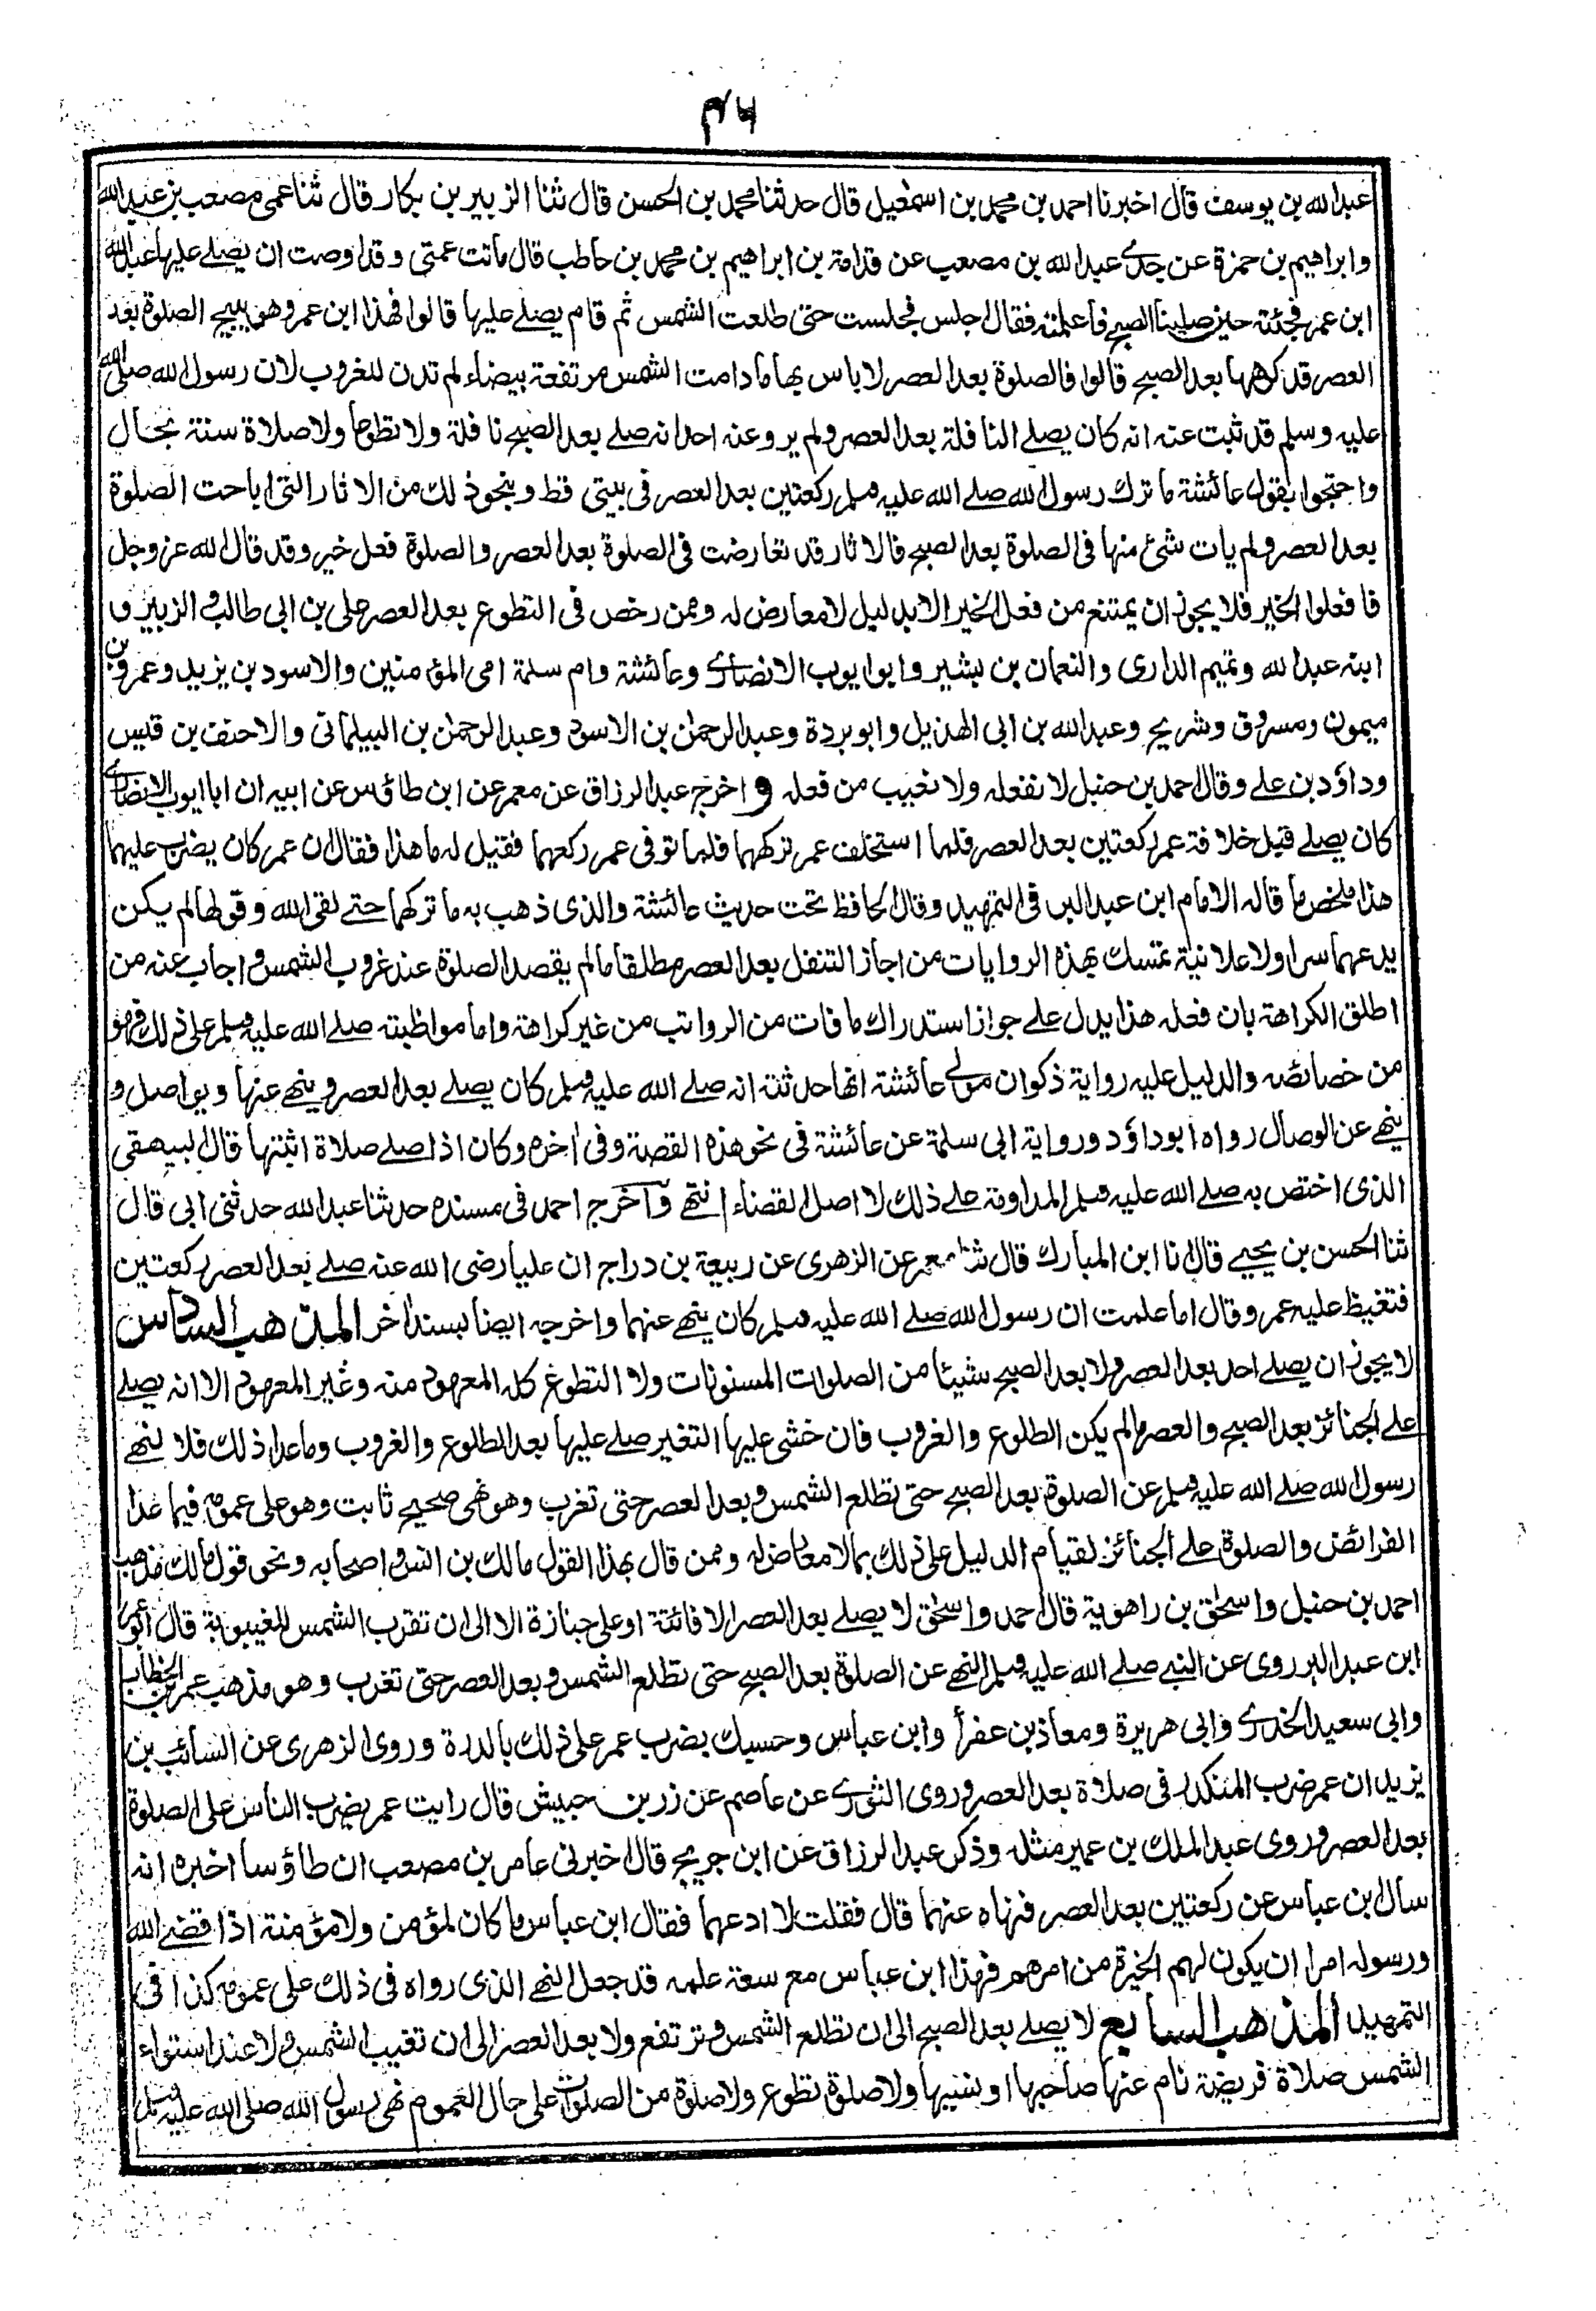 ٤٥
عبد الله بن يوسف قال اخبرنا احمد بن محمد بن اسمعيل قال حدثنا محمد بن الحسن قال ثنا الزبير بن بكار قال ثنا عمى مصعب بن عبد الله
وابراهيم بن حمزة عن جدى عبد الله بن مصعب عن قدامة بن ابراهيم بن محمد بن حاطب قال ماتت عمتى وقد اوصت ان يصلے عليها عبد الله
ابن عمر فجئته حين صلينا الصبح فاعلمته فقال اجلس فجلست حتى طلعت الشمس ثم قام يصلے عليها قالوا فهذا ابن عمر وهو يبيح الصلوة بعد
العصر قد كرهها بعد الصبح قالوا فالصلوة بعد العصر لا باس بها ما دامت الشمس مرتفعة بيضاء لم تدن للغروب لان رسول الله صلى الله
عليه وسلم قد ثبت عنه انه كان يصلے النافلة بعد العصر ولم يرو عنه احد انه صلے بعد الصبح نافلة ولا تطوعا ولا صلاة سنة بحال
واحتجوا بقول عائشة ما ترك رسول الله صلے الله عليه وسلم ركعتين بعد العصر فى بيتى قط وبنحو ذلك من الاثار التى اباحت الصلوة
بعد العصر ولم يات شئ منها فى الصلوة بعد الصبح فالاثار قد تعارضت فى الصلوة بعد العصر والصلوة فعل خير وقد قال الله عز وجل
فافعلوا الخير فلا يجوز ان يمتنع من فعل الخير الا بدليل لا معارض له وممن رخص فى التطوع بعد العصر على بن ابى طالب والزبير و
ابنه عبد الله وتميم الدارى والنعمان بن بشير وابو ايوب الانصارى وعائشة وام سلمة امى المؤمنين والاسود بن يزيد وعمرو بن
ميمون ومسروق وشريح وعبد الله بن ابى الهذيل وابو بردة وعبد الرحمن بن الاسود وعبد الرحمن بن البيلمانى والاحنف بن قيس
وداؤد بن علے وقال احمد بن حنبل لا نفعله ولا نعيب من فعله واخرج عبد الرزاق عن معمر عن ابن طاؤس عن ابيه ان ابا ايوب الانصارى
كان يصلے قبل خلافة عمر ركعتين بعد العصر فلما استخلف عمر تركهما فلما توفى عمر ركعهما فقيل له ما هذا فقال ان عمر كان يضرب عليهما
هذا ملخص ما قاله الامام ابن عبد البر فى التمهيد وقال الحافظ تحت حديث عائشة والذى ذهب به ما تركهما حتے لقى الله وقولها لم يكن
يدعهما سرا ولا علانية تمسك بهذه الروايات من اجاز التنفل بعد العصر مطلقا ما لم يقصد الصلوة عند غروب الشمس واجاب عنه من
اطلق الكراهة بان فعله هذا يدل علے جواز استدراك ما فات من الرواتب من غير كراهة واما مواظبته صلے الله عليه وسلم على ذلك فهو
من خصائصه والدليل عليه رواية ذكوان مولى عائشة انها حدثته انه صلے الله عليه وسلم كان يصلے بعد العصر وينهے عنها ويواصل و
ينهے عن الوصال رواه ابو داؤد ورواية ابى سلمة عن عائشة فى نحو هذه القصة وفى اخره وكان اذا صلے صلاة اثبتها قال البيهقى
الذى اختص به صلے الله عليه وسلم المداومة علے ذلك لا اصل القضاء انتهے واخرج احمد فى مسنده حدثنا عبد الله حدثنى ابى قال
ثنا الحسن بن يحيى قال انا ابن المبارك قال ثنا معمر عن الزهرى عن ربيعة بن دراج ان عليا رضى الله عنه صلے بعد العصر ركعتين
فتغيظ عليه عمر وقال اما علمت ان رسول الله صلے الله عليه وسلم كان ينهے عنهما واخرجه ايضا بسند اخر المذهب السادس
لا يجوز ان يصلے احد بعد العصر ولا بعد الصبح شيئا من الصلوات المسنونات ولا التطوع كله المعهود منه وغير المعهود الا انه يصلے
علے الجنائز بعد الصبح والعصر ما لم يكن الطلوع والغروب فان خشى عليها التغير صلے عليها بعد الطلوع والغروب وما عدا ذلك فلا لنهے
رسول الله صلے الله عليه وسلم عن الصلوة بعد الصبح حتى تطلع الشمس وبعد العصر حتى تغرب وهو نهى صحيح ثابت وهو على عمومه فيما عدا
الفرائض والصلوة على الجنائز لقيام الدليل على ذلك بما لا معارض له وممن قال بهذا القول مالك بن انس واصحابه ونحو قول مالك مذهب
احمد بن حنبل واسحق بن راهوية قال احمد واسحق لا يصلے بعد العصر الا فائتة او على جنازة الا الى ان تقرب الشمس للغيبوبة قال ابو عمر
ابن عبد البر روى عن النبى صلے الله عليه وسلم النهے عن الصلوة بعد الصبح حتى تطلع الشمس وبعد العصر حتى تغرب وهو مذهب عمر بن الخطاب
وابى سعيد الخدرى وابى هريرة ومعاذ بن عفرأ وابن عباس وحسبك بضرب عمر على ذلك بالدرة وروى الزهرى عن السائب بن
يزيد ان عمر ضرب المنكدر فى صلاة بعد العصر وروى الثورى عن عاصم عن زر بن حبيش قال رايت عمر يضرب الناس على الصلوة
بعد العصر وروى عبد الملك بن عمير مثله وذكر عبد الرزاق عن ابن جريج قال اخبرنى عامر بن مصعب ان طاؤسا اخبره انه
سال ابن عباس عن ركعتين بعد العصر فنهاه عنهما قال فقلت لا ادعهما فقال ابن عباس ما كان لمؤمن ولا مؤمنة اذا قضے الله
ورسوله امرا ان يكون لهم الخيرة من امرهم فهذا ابن عباس مع سعة علمه قد جعل النهے الذى رواه فى ذلك على عمومه كذا فى
التمهيد المذهب السابع لا يصلے بعد الصبح الى ان تطلع الشمس وترتفع ولا بعد العصر الى ان تغيب الشمس ولا عند استواء
الشمس صلاة فريضة نام عنها صاحبها او نسيها ولا صلوة تطوع ولا صلوة من الصلوات على حال لعموم نهى رسول الله صلى الله عليه وسلم